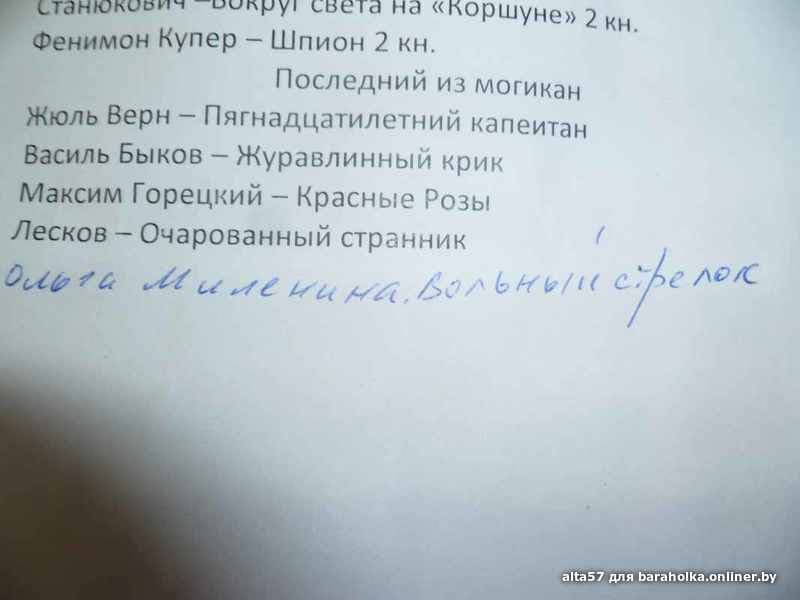 Станюкович –Вокруг света на «Коршуне» 2 кн.
Фенимон Купер – Шпион 2 кн.
Последний из могикан
Жюль Верн – Пягнадцатилетний капеитан
Василь Быков – Журавлинный крик
Максим Горецкий – Красные Розы
Лесков – Очарованный странник
Ольга Миленина. Вольный стрелок
alta57 для baraholka.onliner.by